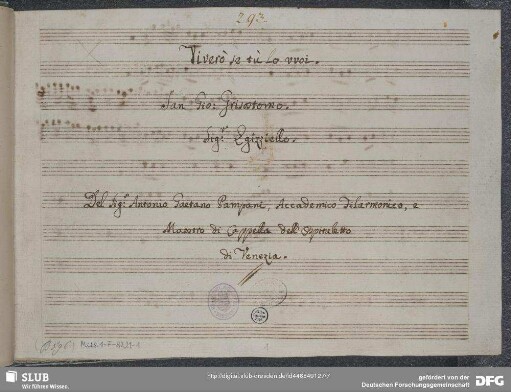 293.
Viverò se tù lo vuoi.
San Gio: Grisostomo.
Sig.r Egizziello.
Del Sig.r Antonio Gaetano Pampani, Accademico Filarmonico, e
Maestro di Cappella dell' Ospitaletto
di Venezia.
SLUB
Wir führen Wissen.
gefördert von der
Deutschen Forschungsgemeinschaft
DFG